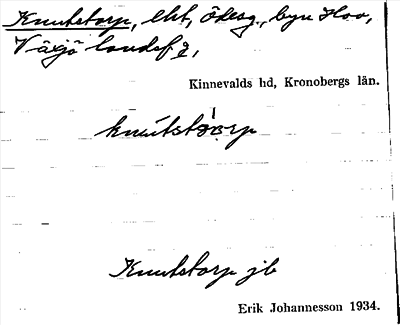 Knutstorp, lht, Ödesg., byn Hov,
Växjö landsf 2,
Kinnevalds hd, Kronobergs län.
knútstòrp
Knutstorp jb
Erik Johannesson 1934.